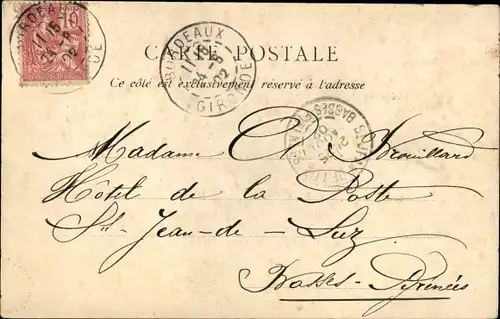 10
BORDEAUX
11 15
4 - 8
02
GIRONDE
CARTE POSTALE
Ce côté est exclusivement réservé à l'adresse
Madame O. Brouillard
Hôtel de la Poste
St-Jean-de-Luz
Basses-Pyrénées